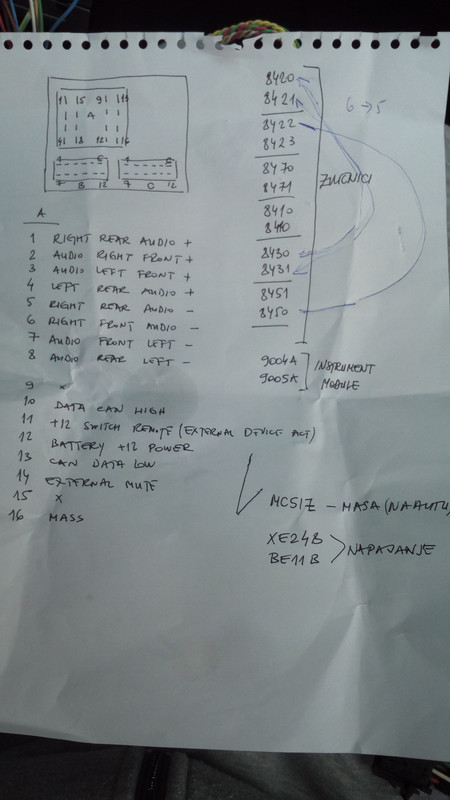 1 5 9 1
A
4 8 12 16
1 6
7 B 12
1 6
7 C 12
A
1 RIGHT REAR AUDIO +
2 AUDIO RIGHT FRONT +
3 AUDIO LEFT FRONT +
4 LEFT REAR AUDIO +
5 RIGHT REAR AUDIO -
6 RIGHT FRONT AUDIO -
7 AUDIO FRONT LEFT -
8 AUDIO REAR LEFT -
9 X
10 DATA CAN HIGH
11 +12 SWITCH REMOTE (EXTERNAL DEVICE ACT)
12 BATTERY +12 POWER
13 CAN DATA LOW
14 EXTERNAL MUTE
15 X
16 MASS
8420
8421
8422
8423
8470
8471
8410
8430
8431
8451
8450
ZVUČNICI
6 → 5
9004A
9005A
INSTRUMENT
MODULE
MC51Z - MASA (NA AUTU)
XE24B
BE11B
NAPAJANJE